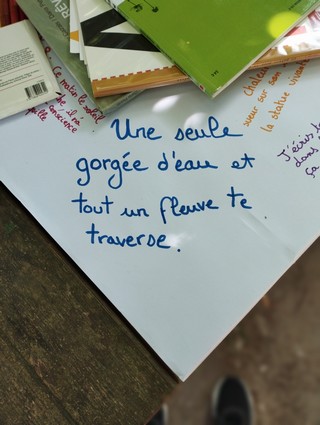 Une seule
gorgée d'eau et
tout un fleuve te
traverse.
Ce matin le soleil
conscience
chaleur
sueur sur son
la statue vivante
J'écris
dans
ça